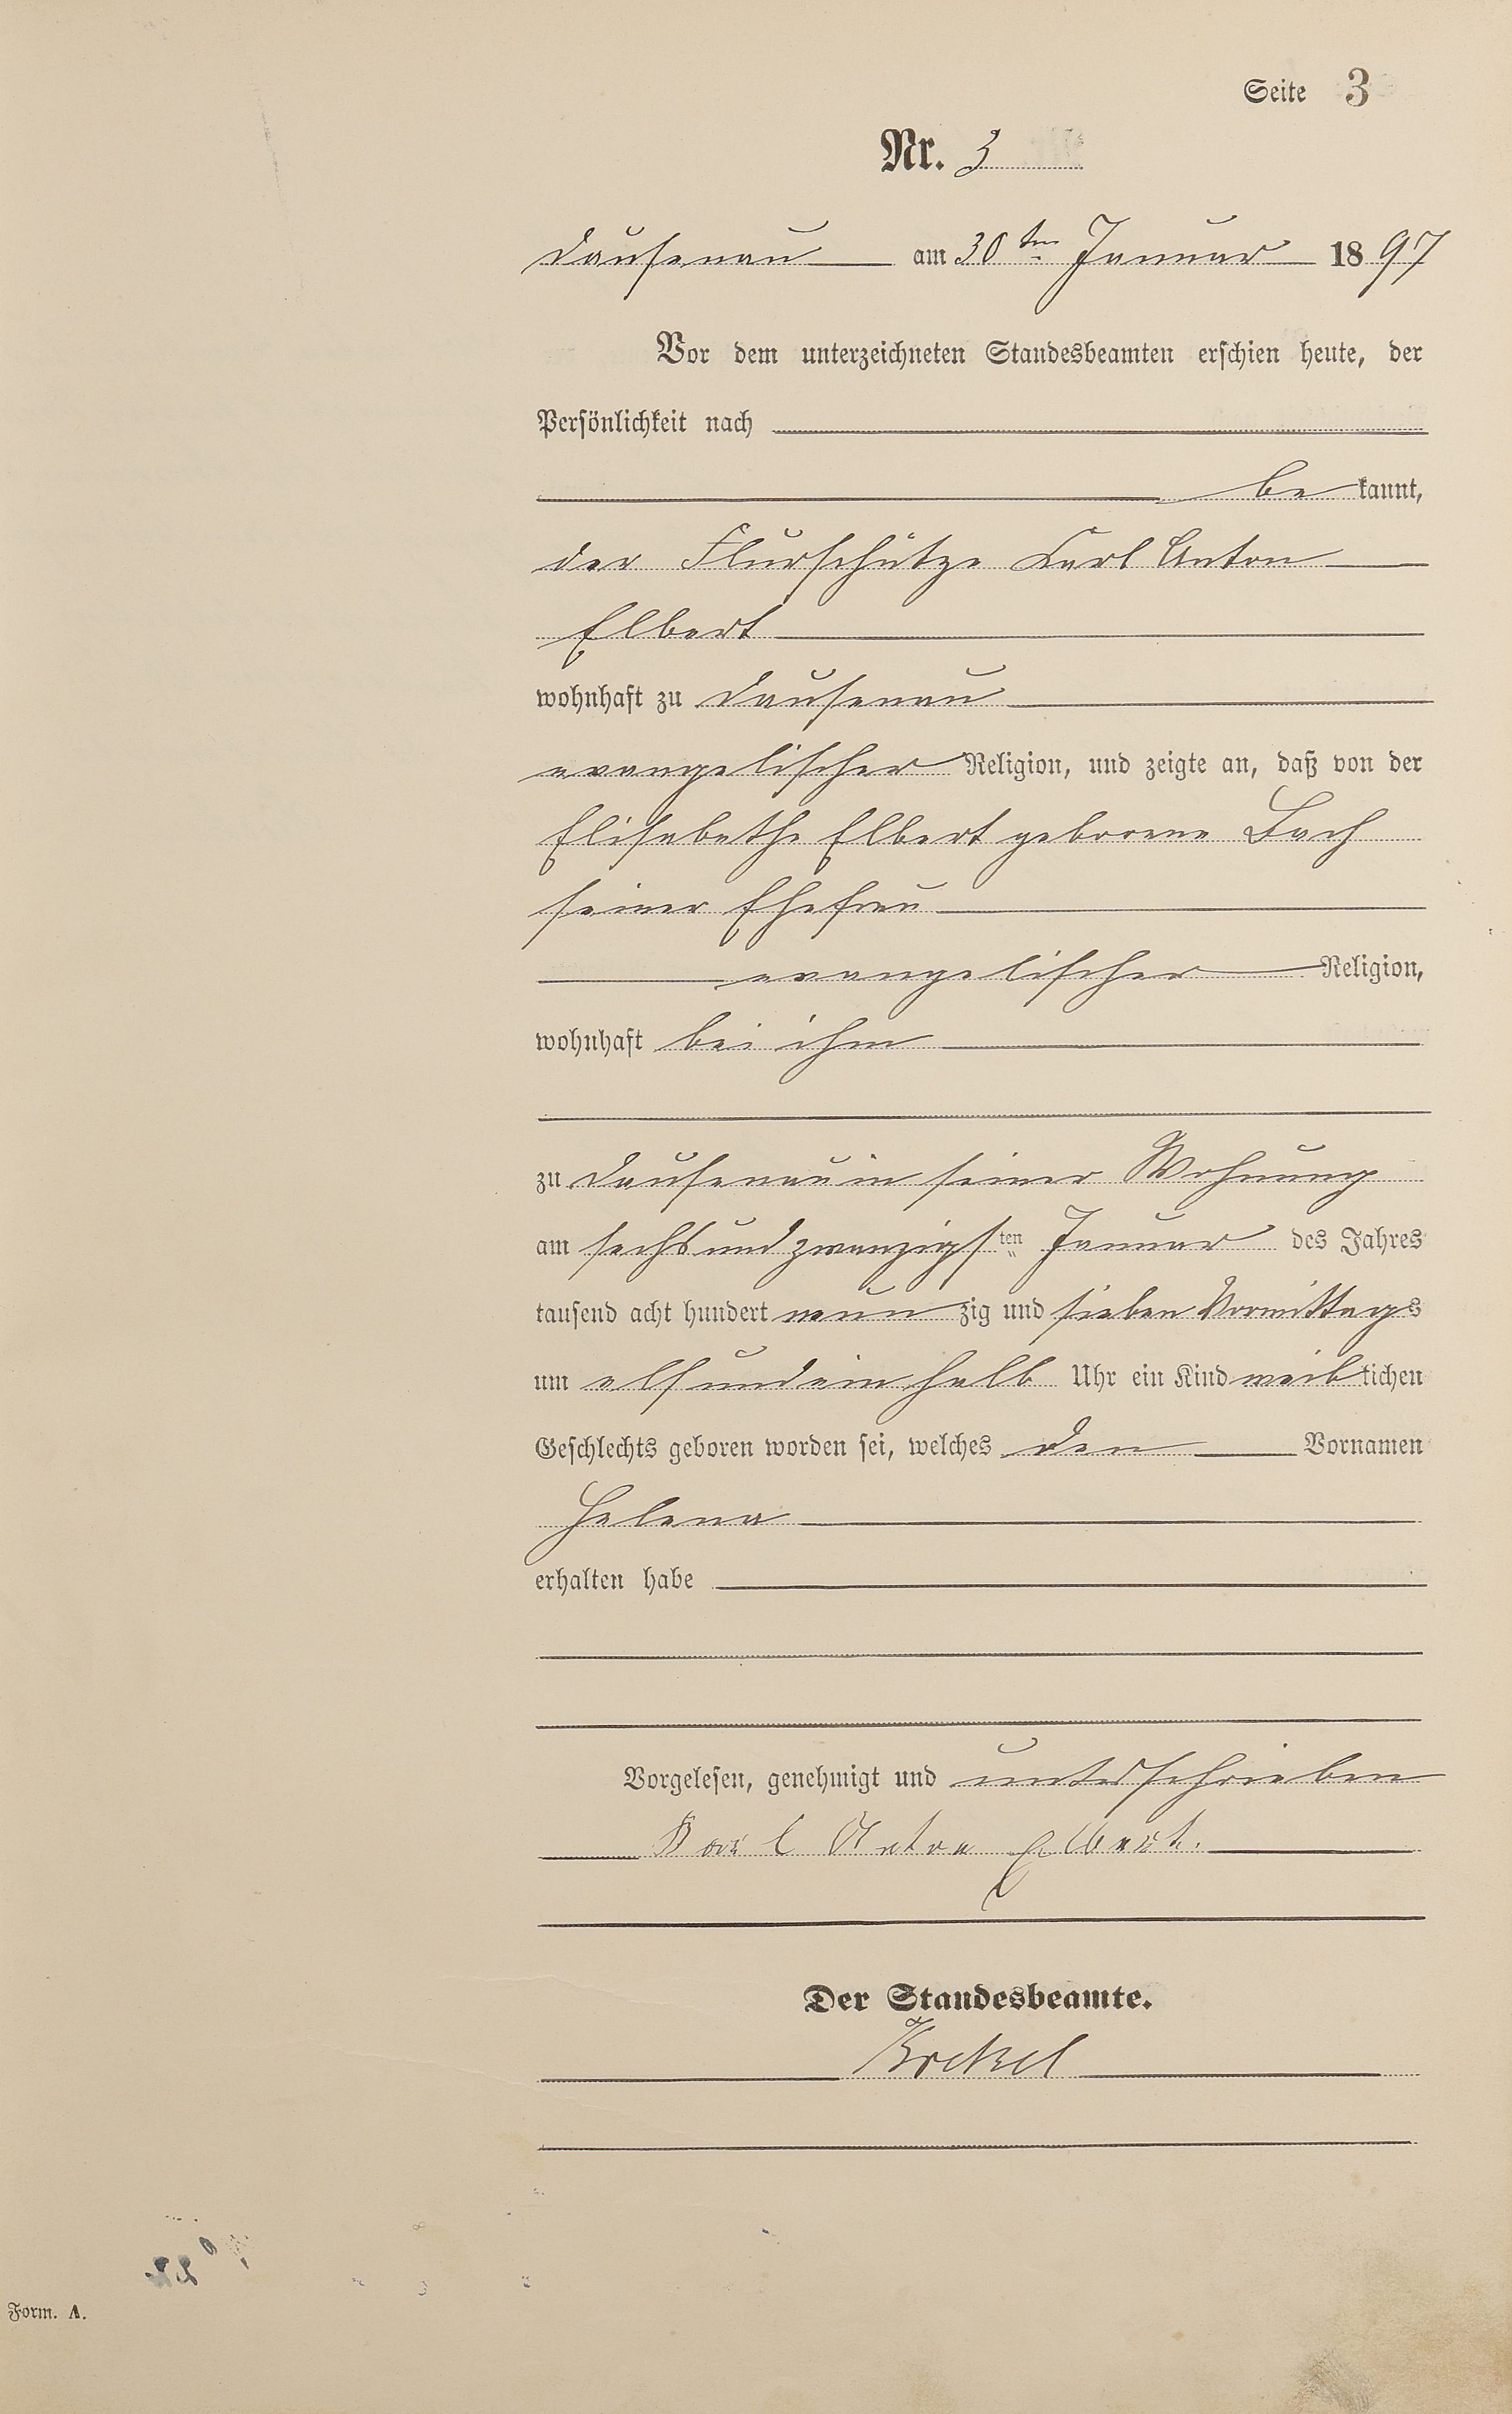 Seite 3
Nr. 3
Dausenau am 30ten Januar 1897
Vor dem unterzeichneten Standesbeamten erschien heute, der
Persönlichkeit nach
be kannt,
der Flurschütze Karl Anton
Elbert
wohnhaft zu Dausenau
evangelischer Religion, und zeigte an, daß von der
Elisabethe Elbert geborene Bach
seiner Ehefrau
evangelischer Religion,
wohnhaft bei ihm
zu Dausenau in seiner Wohnung
am sechsundzwanzigsten Januar des Jahres
tausend acht hundert neun zig und sieben Vormittags
um elf und ein halb Uhr ein Kind weiblichen
Geschlechts geboren worden sei, welches den Vornamen
Helena
erhalten habe
Vorgelesen, genehmigt und unterschrieben
Karl Anton Elbert.
Der Standesbeamte.
Form. A.